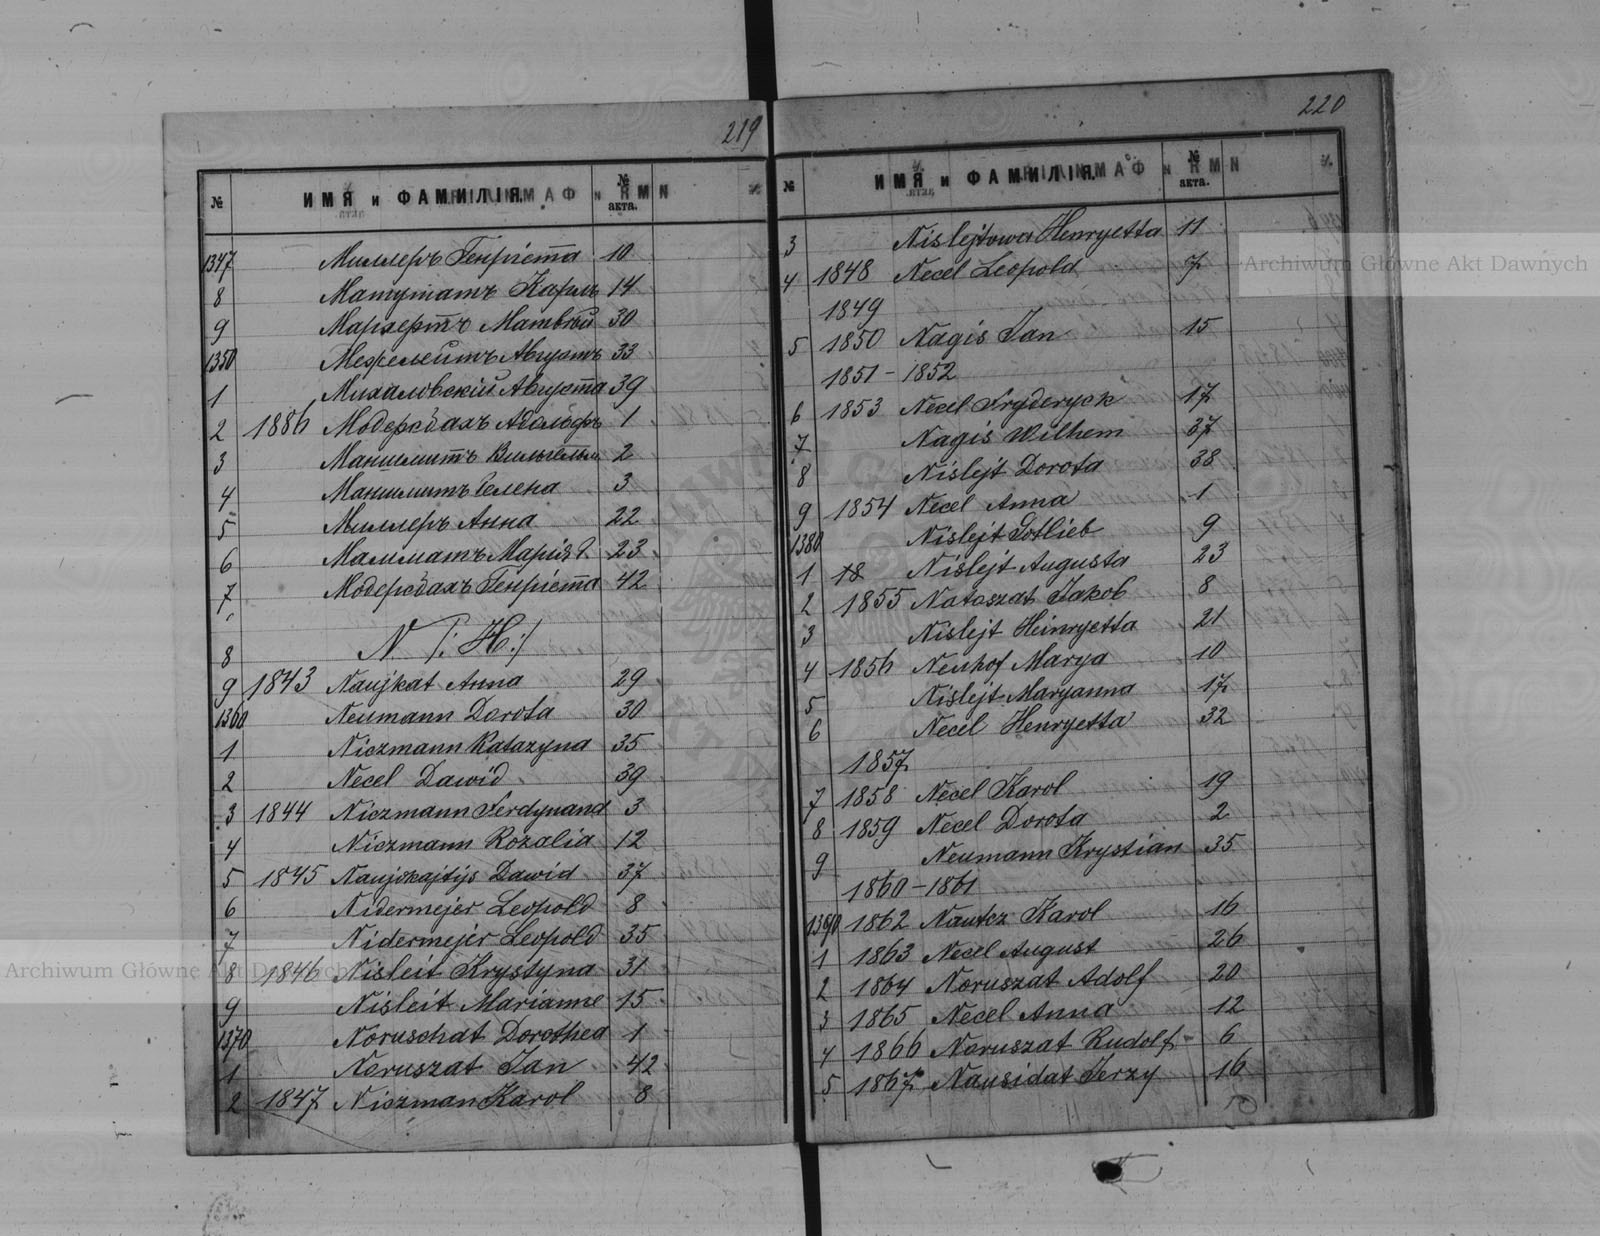 219
№ ИМЯ и ФАМИЛІЯ. № акта.
1347 Миллеръ Генріетта 10
8 Матуматъ Карлъ 14
9 Маркертъ Матвѣй 30
1350 Августъ 33
1 Михаловскій Августа 39
2 1886 Модерсбахъ Адольфъ 1
3 Маншмитъ Вильгельм 2
4 Маншмитъ Гелена 3
5 Миллеръ Анна 22
6 Маллматъ Марія 23
7 Модерсбахъ Генріетта 42
8 N. /: Н:/
9 1843 Naujkat Anna 29
1360 Neumann Dorota 30
1 Niczmann Katazyna 35
2 Necel Dawid 39
3 1844 Niczmann Ferdynand 3
4 Niczmann Rozalia 12
5 1845 Naujokajtys Dawid 37
6 Nidermejer Leopold 8
7 Nidermejer Leopold 35
8 1846 Nisleit Krystyna 31
9 Nisleit Marianne 15
1370 Noruschat Dorothea 1
1 Noruszat Jan 42
2 1847 Niczman Karol 8
220
№ ИМЯ и ФАМИЛІЯ. № акта.
3 Nislejtowa Henryetta 11
4 1848 Necel Leopold 7
1849
5 1850 Nagis Jan 15
1851 - 1852
6 1853 Necel Fryderyck 17
7 Nagis Wilhem 37
8 Nislejt Dorota 38
9 1854 Necel Anna 1
1380 Nislejt Gotlieb 9
1 18 Nislejt Augusta 23
2 1855 Nataszat Jakob 8
3 Nislejt Heinryetta 21
4 1856 Neuhof Marya 10
5 Nislejt Maryanna 17
6 Necel Henryetta 32
1857
7 1858 Necel Karol 19
8 1859 Necel Dorota 2
9 Neumann Krystian 35
1860 - 1861
1390 1862 Nautcz Karol 16
1 1863 Necel August 26
2 1864 Noruszat Adolf 20
3 1865 Necel Anna 12
4 1866 Noruszat Rudolf 6
5 1867 Nausidat Jerzy 16
Archiwum Główne Akt Dawnych
Archiwum Główne Akt Dawnych